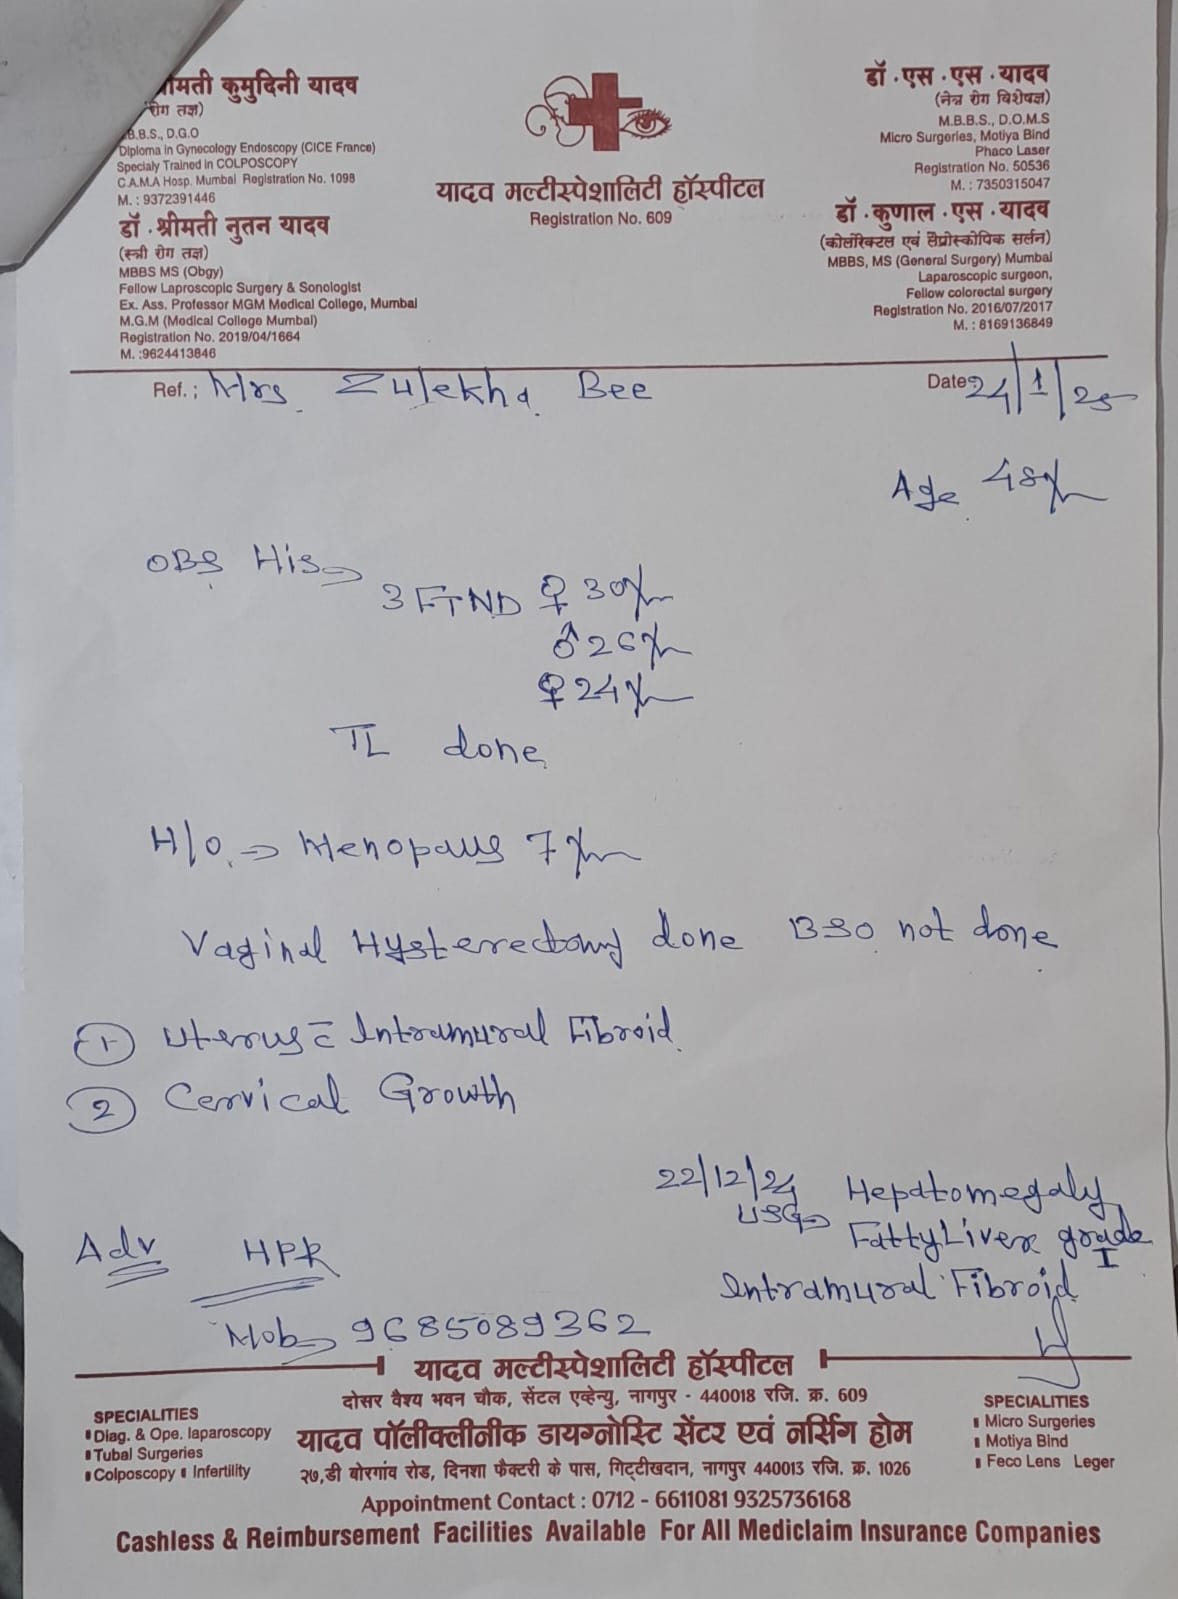 मती कुमुदिनी यादव
रोग तज्ञ)
B.B.S., D.G.O
Diploma in Gynecology Endoscopy (CICE France)
Specialy Trained in COLPOSCOPY
C.A.M.A Hosp. Mumbai Registration No. 1098
M. : 9372391446
डॉ . श्रीमती नुतन यादव
(स्त्री रोग तज्ञ)
MBBS MS (Obgy)
Fellow Laproscopic Surgery & Sonologist
Ex. Ass. Professor MGM Medical College, Mumbai
M.G.M (Medical College Mumbai)
Registration No. 2019/04/1664
M. :9624413846
यादव मल्टीस्पेशालिटी हॉस्पीटल
Registration No. 609
डॉ . एस . एस . यादव
(नेत्र रोग विशेषज्ञ)
M.B.B.S., D.O.M.S
Micro Surgeries, Motiya Bind
Phaco Laser
Registration No. 50536
M. : 7350315047
डॉ . कुणाल . एस . यादव
(कोलोरेक्टल एवं लैप्रोस्कोपिक सर्लन)
MBBS, MS (General Surgery) Mumbai
Laparoscopic surgeon,
Fellow colorectal surgery
Registration No. 2016/07/2017
M. : 8169136849
Ref. : Mrs. Zulekha Bee
Date 24/1/25
Age 48 Yr
OBS His →
3 FTND ♀ 30 Yr
♂ 26 Yr
♀ 24 Yr
TL done
H/O → Menopaus 7 Yr
Vaginal Hysterectomy done BSO not done
① Uterus c̄ Intramural Fibroid
② Cervical Growth
22/12/24 Hepatomegaly
USG → Fatty Liver grade I
Intramural Fibroid
Adv HPR
Mob → 9685089362
यादव मल्टीस्पेशालिटी हॉस्पीटल
दोसर वैश्य भवन चौक, सेंटल एव्हेन्यु, नागपुर - 440018 रजि. क्र. 609
यादव पॉलीक्लीनीक डायग्नोस्टि सेंटर एवं नर्सिग होम
२७,डी बोरगांव रोड, दिनशा फैक्टरी के पास, गिट्टीखदान, नागपुर 440013 रजि. क्र. 1026
SPECIALITIES
Diag. & Ope. laparoscopy
Tubal Surgeries
Colposcopy Infertility
SPECIALITIES
Micro Surgeries
Motiya Bind
Feco Lens Leger
Appointment Contact : 0712 - 6611081 9325736168
Cashless & Reimbursement Facilities Available For All Mediclaim Insurance Companies